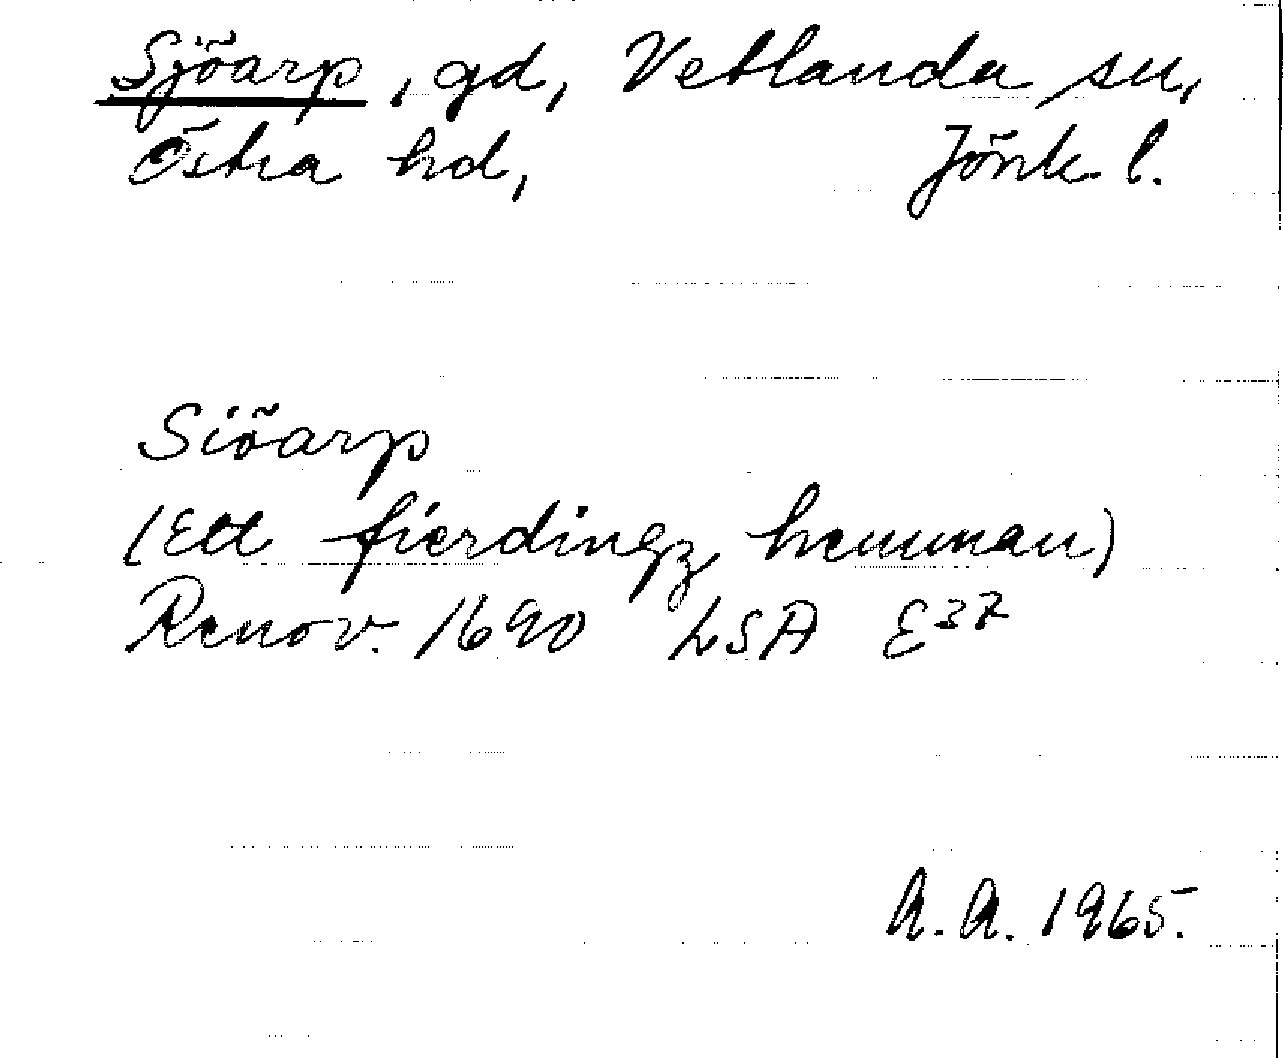 Sjöarp, gd, Vetlanda sn,
Östra hd, Jönk l.
Siöarp
(Ett fierdingz hemman)
Renov. 1690 LSA E³⁷
A.A. 1965.